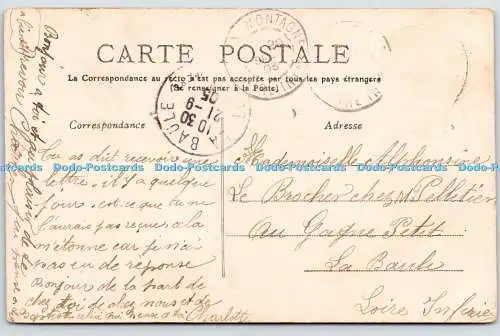 CARTE POSTALE
La Correspondance au recto n'est pas acceptée par tous les pays étrangers
(Se renseigner à la Poste)
Correspondance
Adresse
MONTAGNE
LA BAULE
10 30
21-9
05
Tu as dût recevoir une
lettre il y a quelque
jour est-ce que tu ne
l'aurais pas reçue a la
m'étonne car je n'ai
pas eu de réponse
Bonjour de la part de
chez toi de chez nous et de
Charlotte
Bonjour a toi et
Mademoiselle Alphonsine
Le Brocher chez M Pelletier
Au Gagne Petit
La Baule
Loire Inférie
Dodo-Postcards Dodo-Postcards Dodo-Postcards Dodo-Postcards Dodo-Postcards